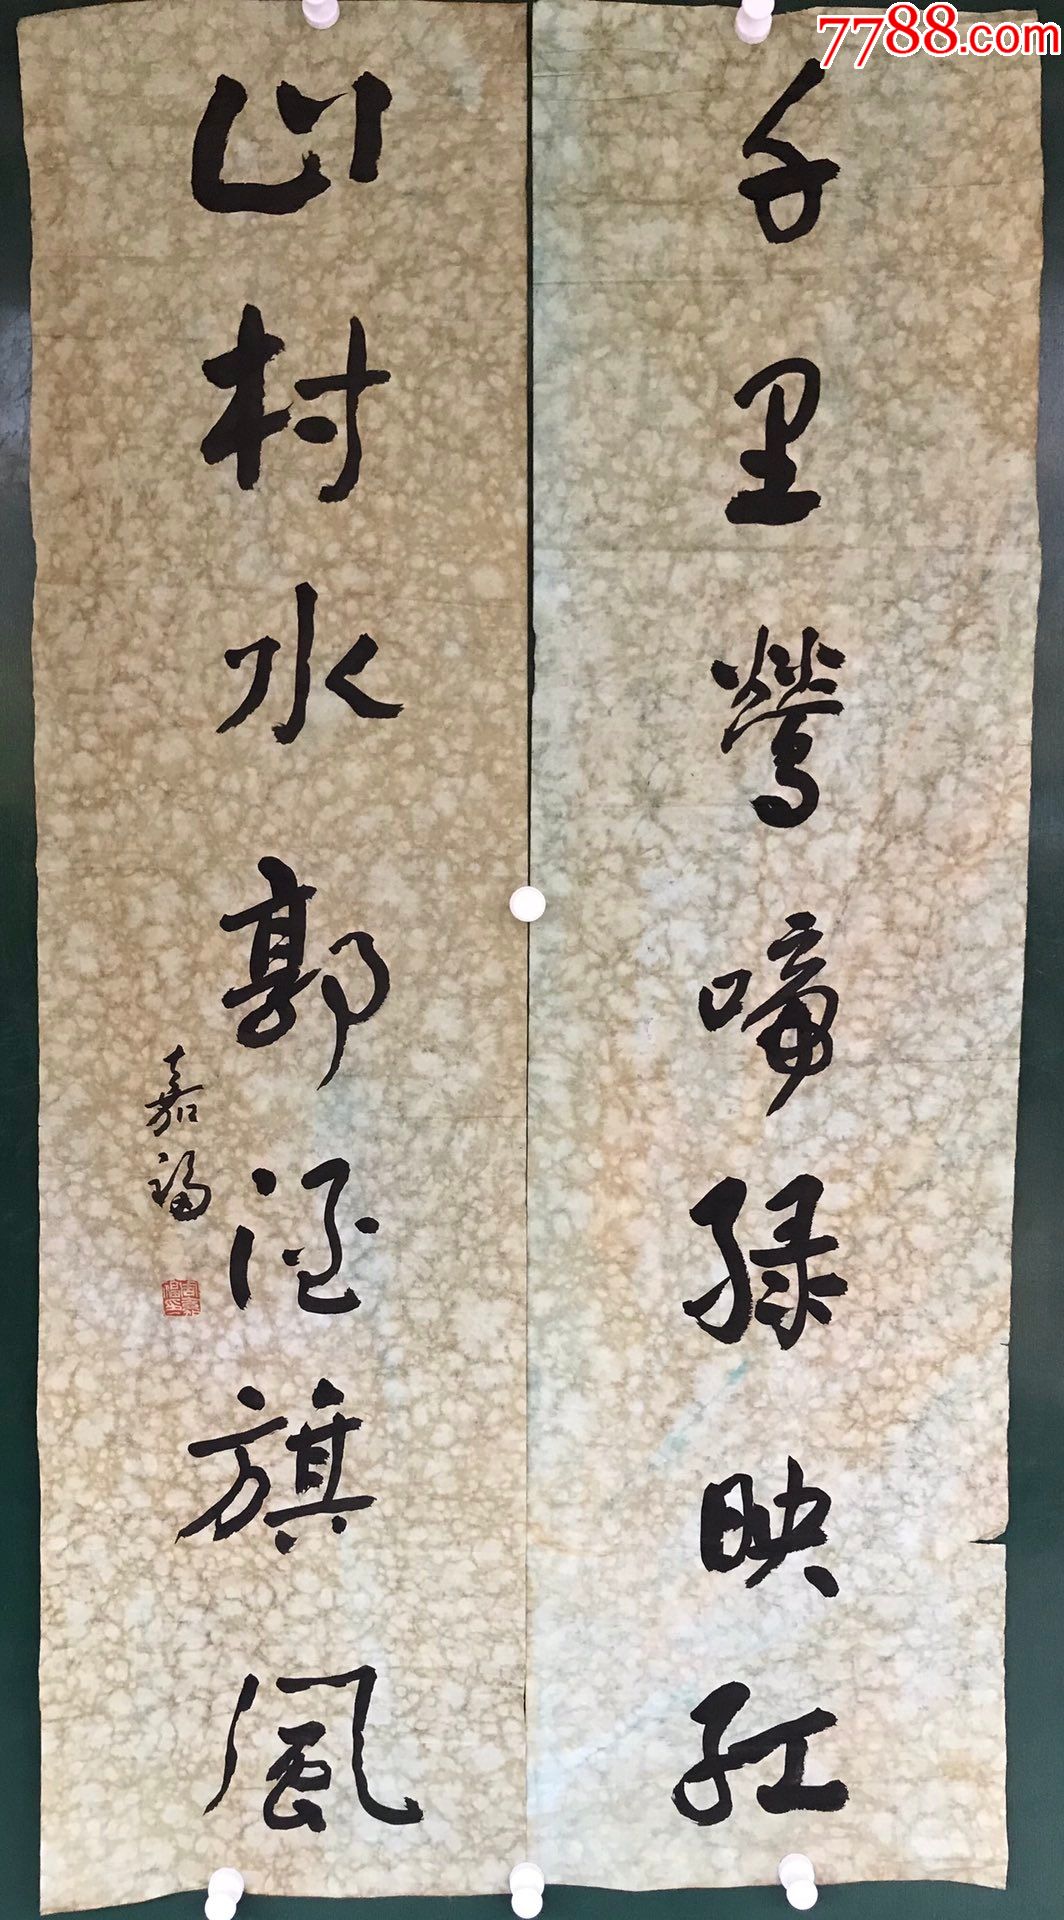 7788.com
千里鶯啼綠映紅
山村水郭酒旗風
嘉福